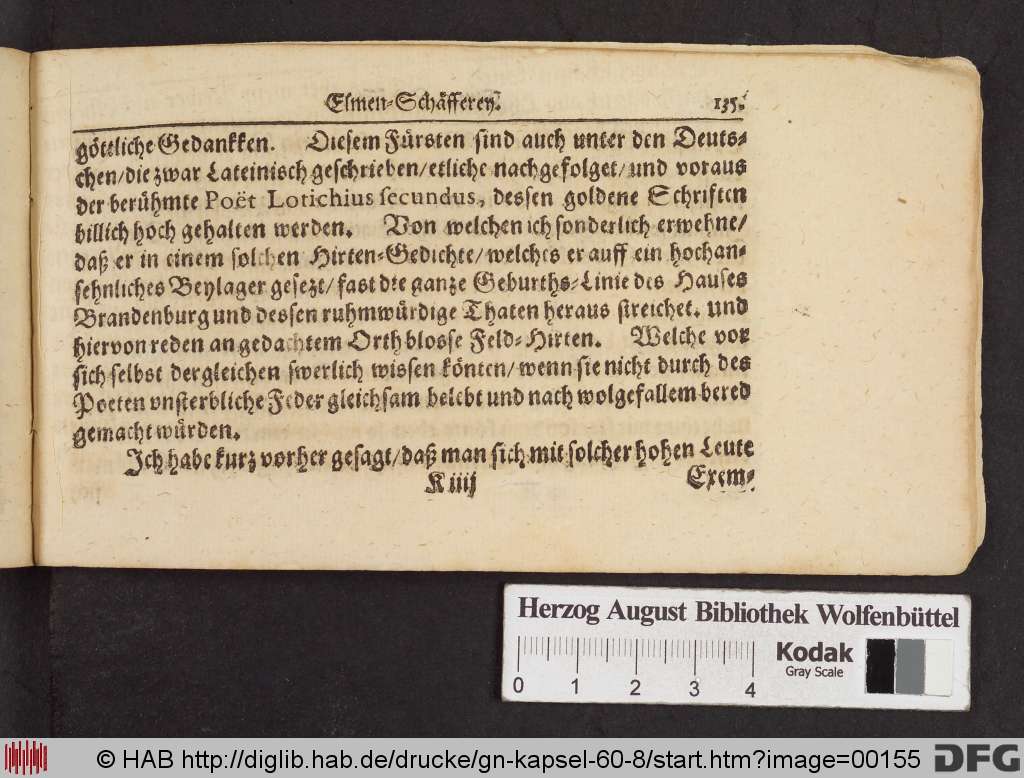 Elmen-Schäfferey.
135.
göttliche Gedankken. Diesem Fürsten sind auch unter den Deuts-
chen/die zwar Lateinisch geschrieben/etliche nachgefolget/und voraus
der berühmte Poët Lotichius secundus, dessen goldene Schriften
billich hoch gehalten werden. Von welchen ich sonderlich erwehne/
daß er in einem solchen Hirten-Gedichte/welches er auff ein hochan-
sehnliches Beylager gesezt/fast die ganze Geburths-Linie des Hauses
Brandenburg und dessen ruhmwürdige Thaten heraus streichet. und
hiervon reden an gedachtem Orth blosse Feld-Hirten. Welche vor
sich selbst dergleichen swerlich wissen könten/wenn sie nicht durch des
Poeten vnsterbliche Feder gleichsam belebt und nach wolgefallem bered
gemacht würden.
Ich habe kurz vorher gesagt/daß man sich mit solcher hohen Leute
K iiij
Exem-
Herzog August Bibliothek Wolfenbüttel
Kodak
Gray Scale
0 1 2 3 4
© HAB http://diglib.hab.de/drucke/gn-kapsel-60-8/start.htm?image=00155
DFG